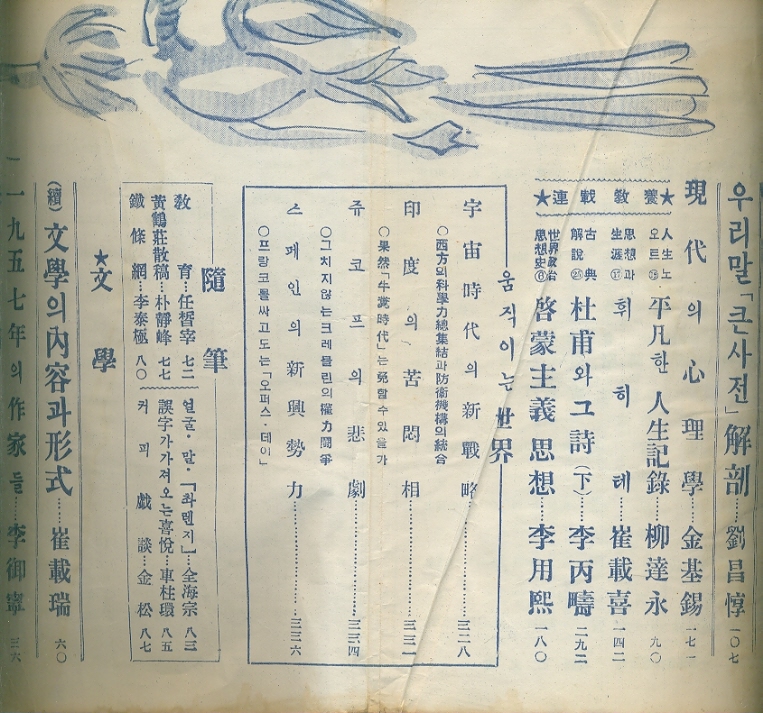 우리말「큰사전」解剖……劉昌惇 二〇七
現代의 心理學……金基錫 一七一
★連載敎養★
人生노오트⑲ 平凡한 人生記錄……柳達永 九〇
思想과生涯⑰ 휘히테……崔載喜 一四二
古典解說㉕ 杜甫와 그 詩(下)……李丙疇 二九二
世界政治思想史⑥ 啓蒙主義 思想……李用熙 一八〇
움직이는 世界
宇宙時代의 新戰略……三二八
○西方의 科學力總集結과 防衛機構의 統合
印度의 苦悶相……三三二
○果然「牛糞時代」는 免할 수 있을가
쥬코프의 悲劇……三三四
○그치지않는 크레믈린의 權力鬪爭
스페인의 新興勢力……三三六
○프랑코를 싸고도는「오퍼스·데이」
隨筆
敎育…任晳宰 七二
黃鶴莊散稿…朴靜峰 七七
鐵條網…李泰極 八〇
얼굴·말·「촤렌지」…全海宗 八三
誤字가 가져오는 喜悅…車柱環 八五
커피 戱談…金松 八七
★文學
(續) 文學의 內容과 形式……崔載瑞 六〇
一九五七年의 作家들……李御寧 三六